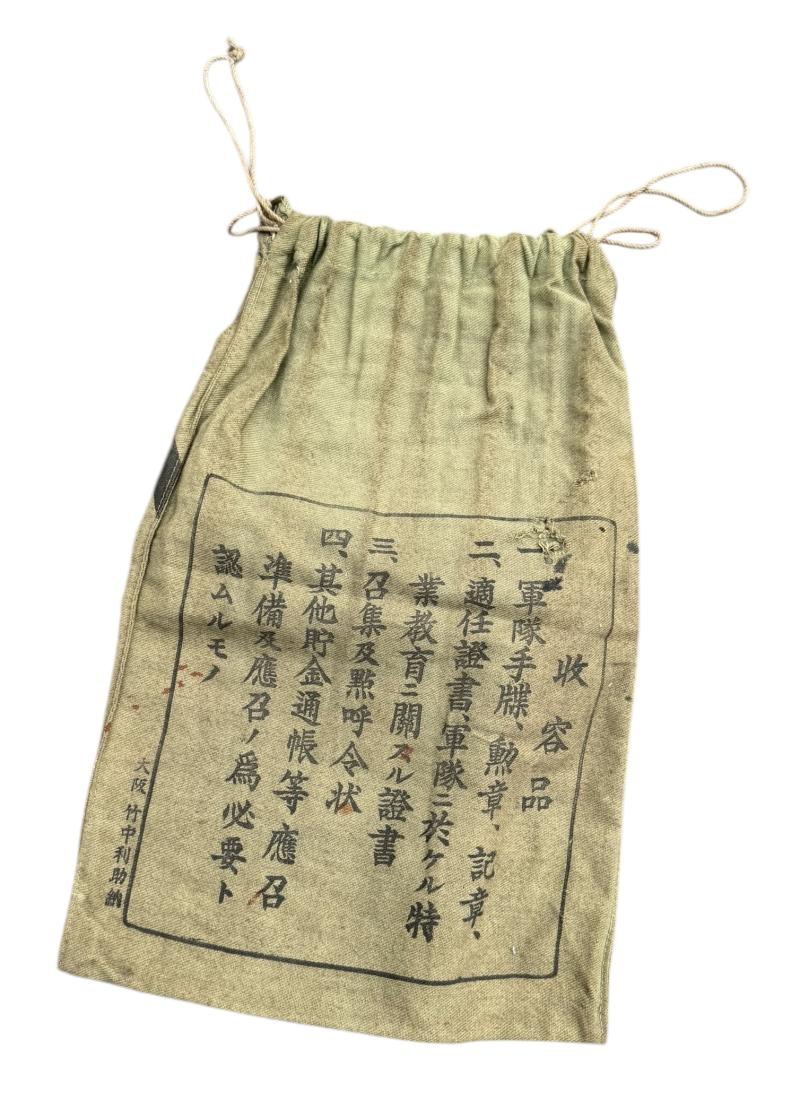 收容品
一、軍隊手牒、勲章、記章、
二、適任證書、軍隊ニ於ケル特
業教育ニ關スル證書
三、召集及點呼令状
四、其他貯金通帳等應召
準備及應召ノ爲必要ト
認ムルモノ
大阪 竹中利助納